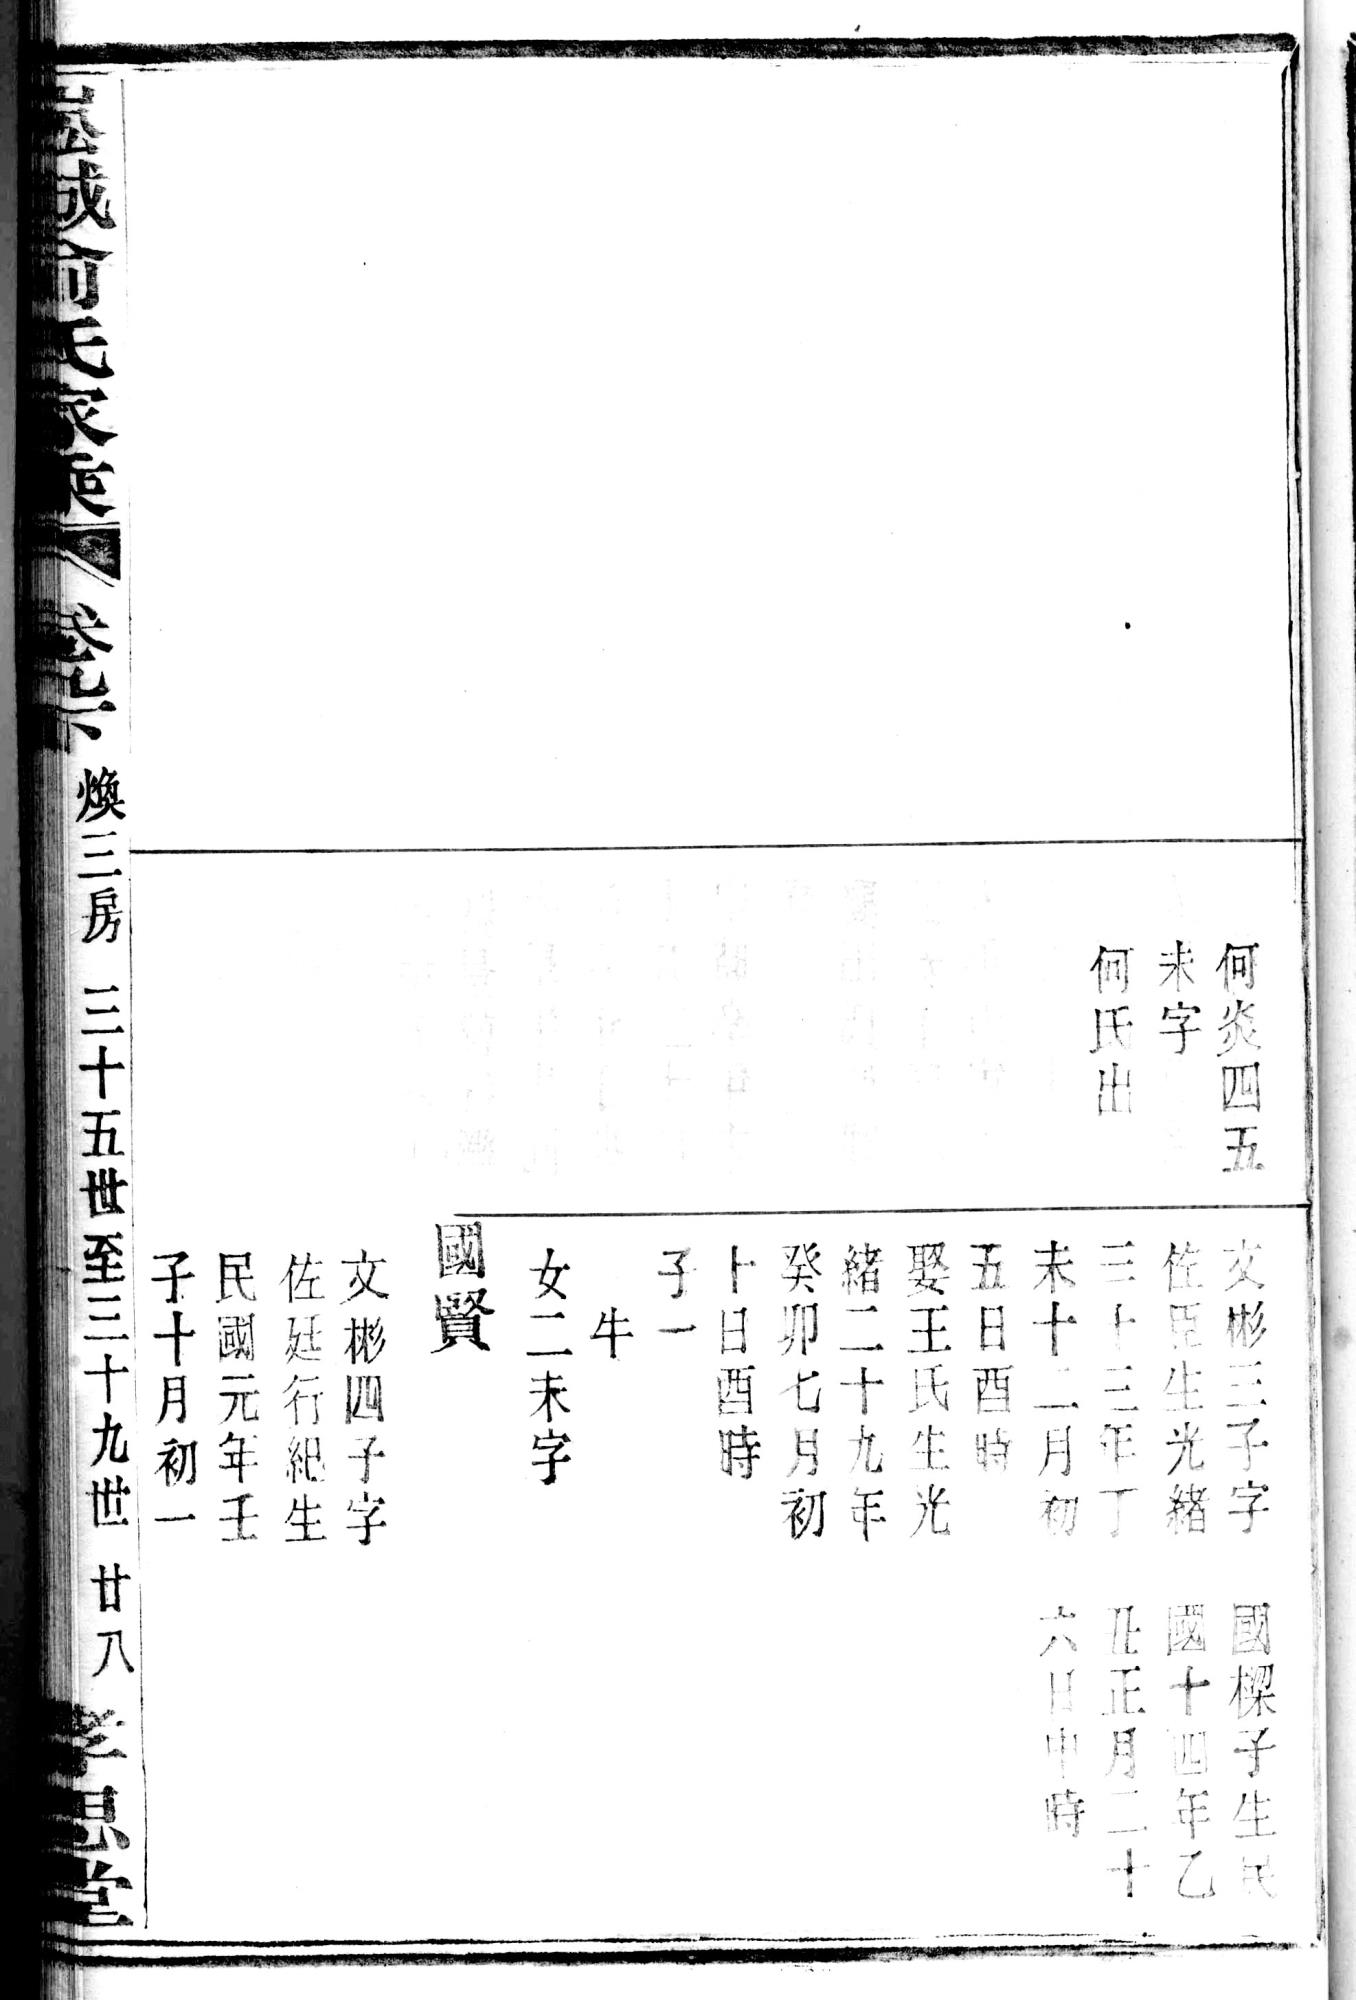 何炎四五
未字
何氏出
文彬三子字
佐臣生光緒
三十三年丁
未十二月初
五日酉時
娶王氏生光
緒二十九年
癸卯七月初
卜日酉時
子一
牛
女二未字
國賢
文彬四子字
佐廷行紀生
民國元年壬
子十月初一
國樑子生民
國十四年乙
丑正月二十
六日申時
氏家
煥三房 三十五世至三十九世 廿八
孝思堂